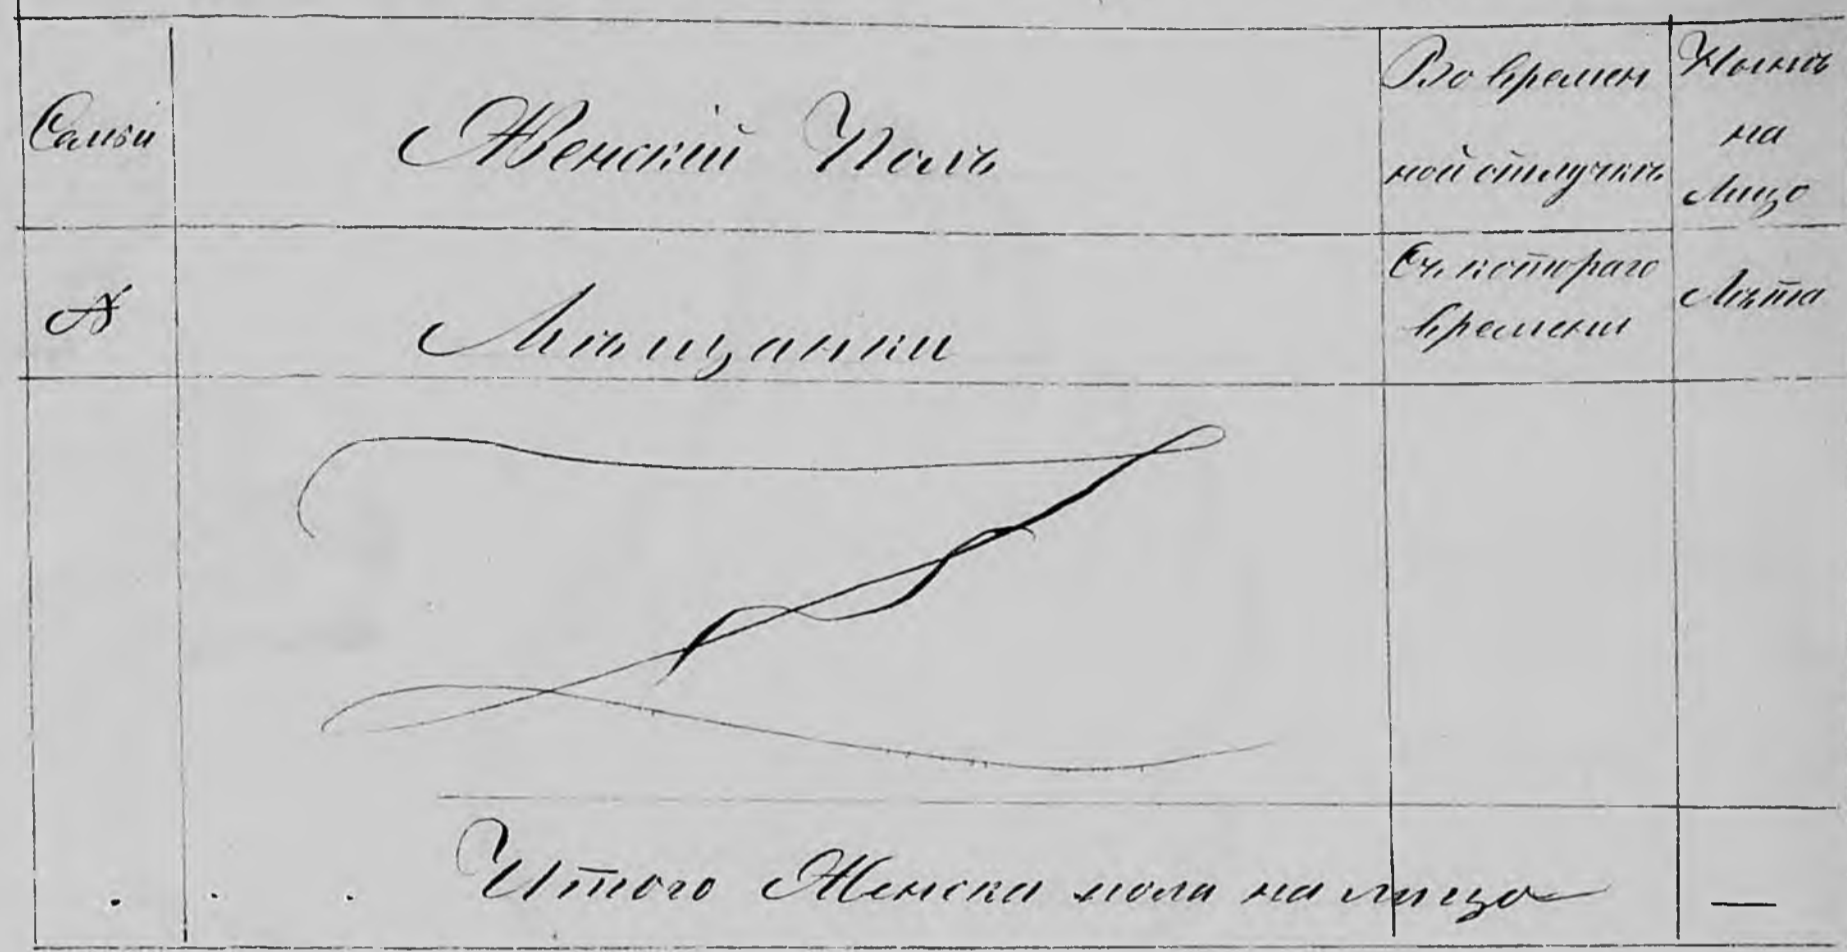 Семьи
Женскій Полъ
Во времен
ной отлучкѣ
Нынѣ
на
лицо
№
Мѣщанки
Съ котораго
времени
Лѣта
Итого Женска пола на лицо —